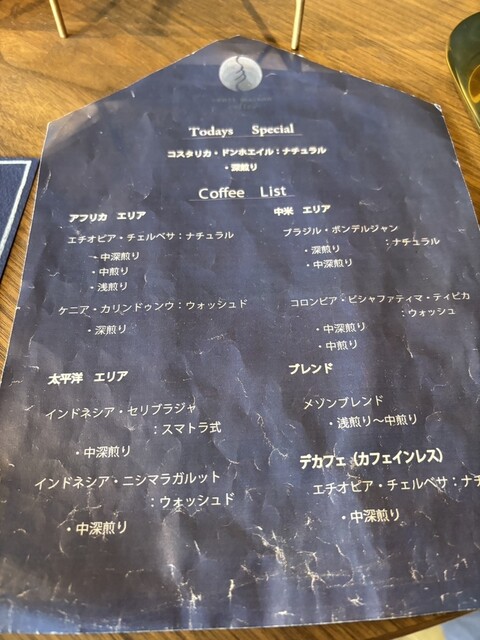 Todays Special
コスタリカ・ドンホエイル：ナチュラル
・深煎り
Coffee List
アフリカ エリア
エチオピア・チェルベサ：ナチュラル
・中深煎り
・中煎り
・浅煎り
ケニア・カリンドゥンウ：ウォッシュド
・深煎り
太平洋 エリア
インドネシア・セリブラジャ
：スマトラ式
・中深煎り
インドネシア・ニシマラガルット
：ウォッシュド
・中深煎り
中米 エリア
ブラジル・ボンデルジャン
：ナチュラル
・深煎り
・中深煎り
コロンビア・ビシャファティマ・ティピカ
：ウォッシュ
・中深煎り
・中煎り
ブレンド
メゾンブレンド
・浅煎り～中煎り
デカフェ（カフェインレス）
エチオピア・チェルベサ：ナチ
・中深煎り